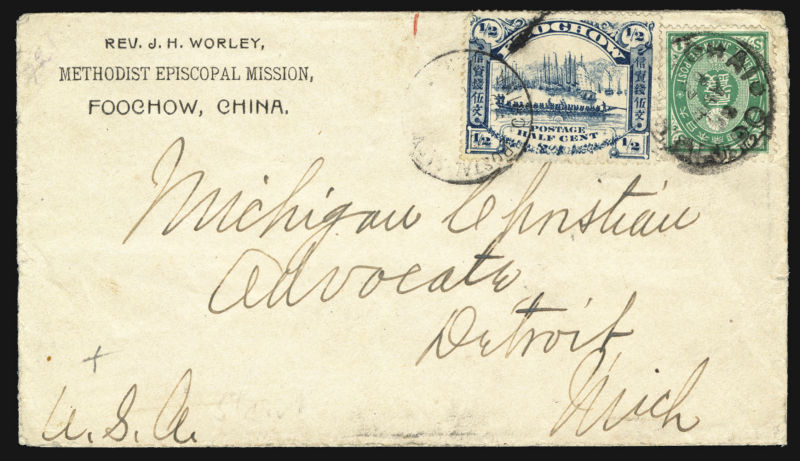 REV. J. H. WORLEY,
METHODIST EPISCOPAL MISSION,
FOOCHOW, CHINA.
1/2 FOOCHOW 1/2
POSTAGE
HALF CENT
1/2 1/2
POSTAL
Michigan Christian
Advocate
Detroit
Mich
U. S. A.